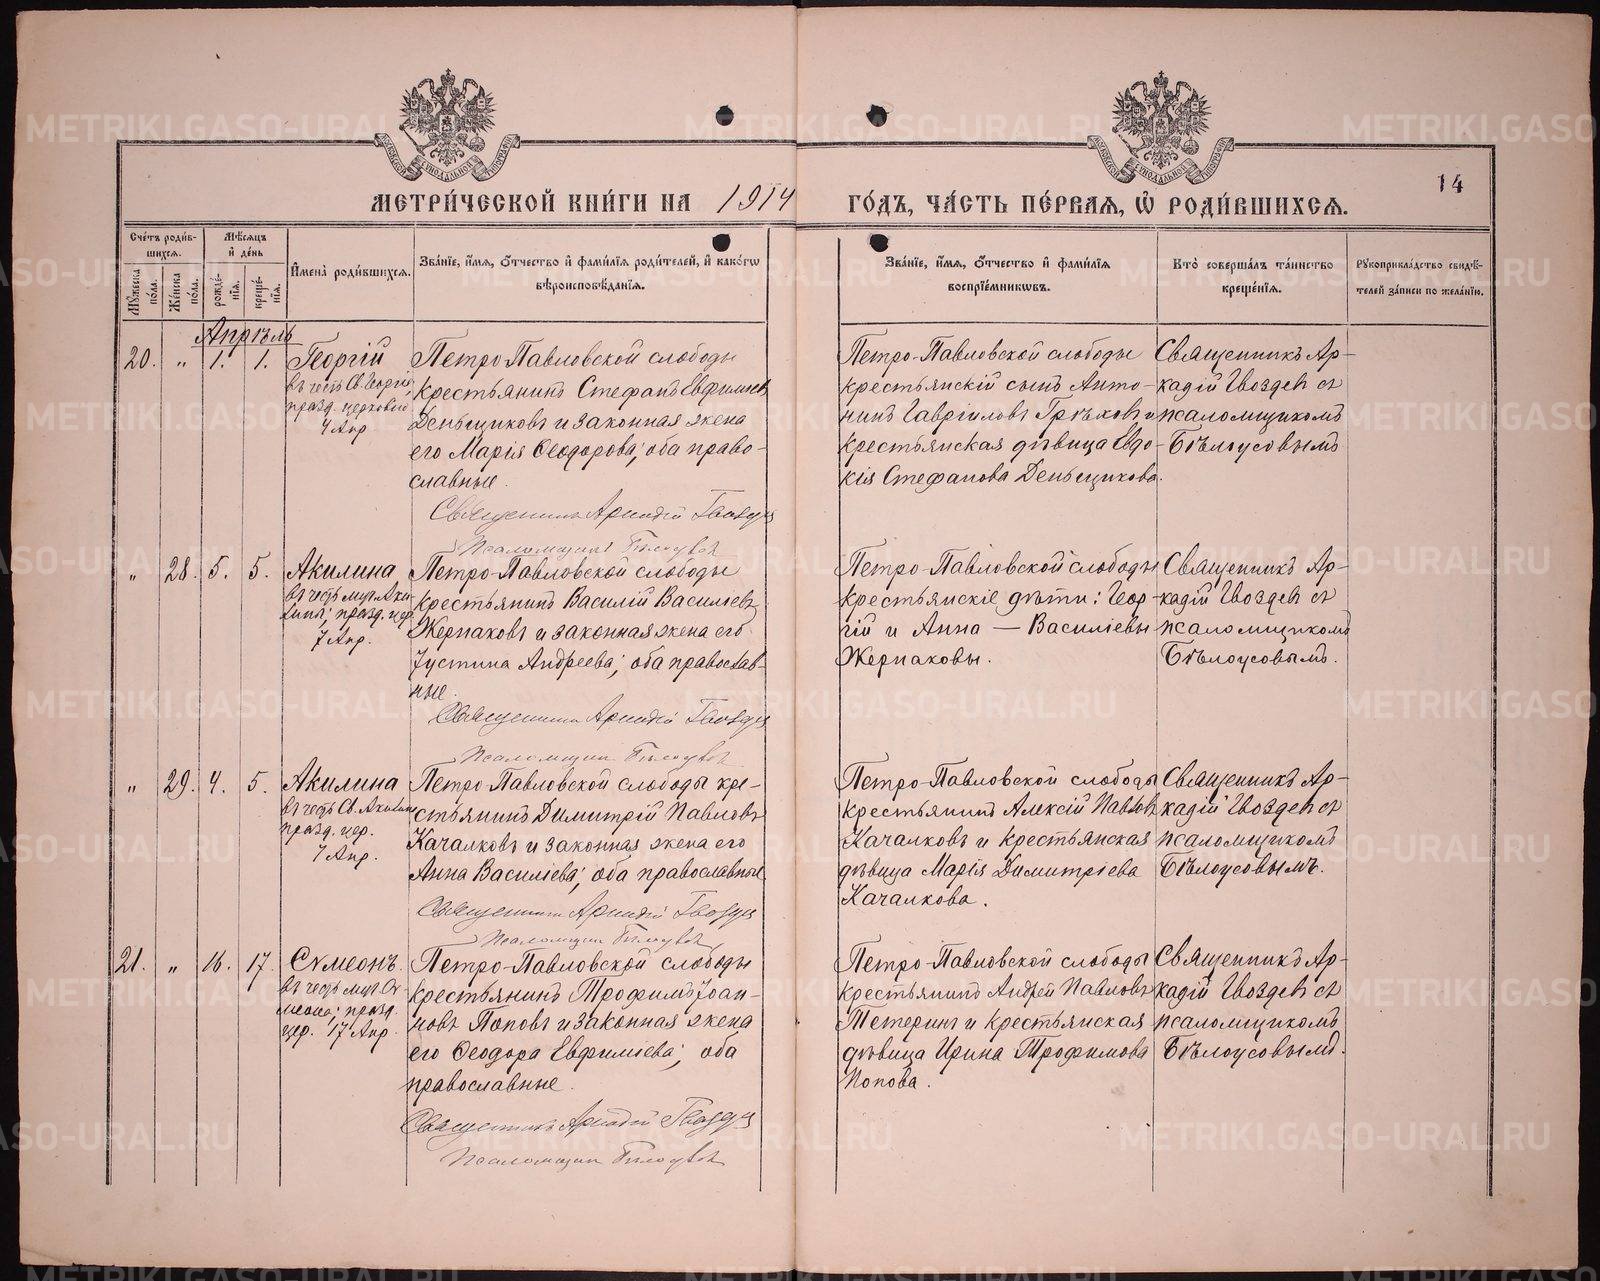 МЕТРИ́ЧЕСКОЙ КНИ́ГИ НА 1914 ГО́ДЪ, ЧА́СТЬ ПЕ́РВАЯ, Ѡ РОДИ́ВШИХСЯ.
14
Сче́тъ роди́в-
шихся.
Мꙋ́жеска по́ла.
Же́нска по́ла.
Мѣ́сяцъ
и҆ де́нь
рожде́-
нїя.
креще́-
нїя.
И҆мена̀ роди́вшихся.
Зва́нїе, и҆́мя, ѻ҆́тчество и҆ фамі́лїя роди́телей, и҆ како́гѡ
вѣроисповѣ́данїя.
Зва́нїе, и҆́мя, ѻ҆́тчество и҆ фамі́лїя
воспрїе́мникѡвъ.
Кто̀ соверша́лъ та́инство
креще́нїя.
Рꙋкоприкла́дство свидѣ́-
телей за́писи по жела́нїю.
Апрѣль
20. " 1. 1.
Георгій
въ честь Св. Георгія
празд. церковью
4 Апр.
Петро-Павловской слободы
крестьянинъ Стефанъ Евфиміевъ
Деньщиковъ и законная жена
его Марія Ѳеодорова; оба право-
славные.
Священникъ Аркадій Гвоздевъ
Псаломщикъ Бѣлоусовъ
Петро-Павловской слободы
крестьянскій сынъ Анто-
нинъ Гавріиловъ Грѣховъ и
крестьянская дѣвица Евдо-
кія Стефанова Деньщикова.
Священникъ Ар-
кадій Гвоздевъ съ
псаломщикомъ
Бѣлоусовымъ
" 28. 5. 5.
Акилина
въ честь муч. Аки-
лины; празд. цер.
7 Апр.
Петро-Павловской слободы
крестьянинъ Василій Васильевъ
Жернаковъ и законная жена его
Іустина Андреева; оба православ-
ные.
Священникъ Аркадій Гвоздевъ
Псаломщикъ Бѣлоусовъ
Петро-Павловской слободы
крестьянскіе дѣти: Геор-
гій и Анна — Василіевы
Жернаковы.
Священникъ Ар-
кадій Гвоздевъ съ
псаломщикомъ
Бѣлоусовымъ.
" 29. 4. 5.
Акилина
въ честь Св. Акилины
празд. цер.
7 Апр.
Петро-Павловской слободы кре-
стьянинъ Димитрій Павловъ
Качалковъ и законная жена его
Анна Василіева; оба православные
Священникъ Аркадій Гвоздевъ
Псаломщикъ Бѣлоусовъ
Петро-Павловской слободы
крестьянинъ Алексій Павловъ
Качалковъ и крестьянская
дѣвица Марія Димитріева
Качалкова.
Священникъ Ар-
кадій Гвоздевъ съ
псаломщикомъ
Бѣлоусовымъ.
21. " 16. 17.
Сѵмеонъ.
въ честь муч. Сѵ-
меона; празд.
цер. 17 Апр.
Петро-Павловской слободы
крестьянинъ Трофимъ Іоан-
новъ Поповъ и законная жена
его Ѳеодора Евфиміева; оба
православные.
Священникъ Аркадій Гвоздевъ
Псаломщикъ Бѣлоусовъ
Петро-Павловской слободы
крестьянинъ Андрей Павловъ
Тетеринъ и крестьянская
дѣвица Ирина Трофимова
Попова.
Священникъ Ар-
кадій Гвоздевъ съ
псаломщикомъ
Бѣлоусовымъ.
METRIKI.GASO-URAL.RU